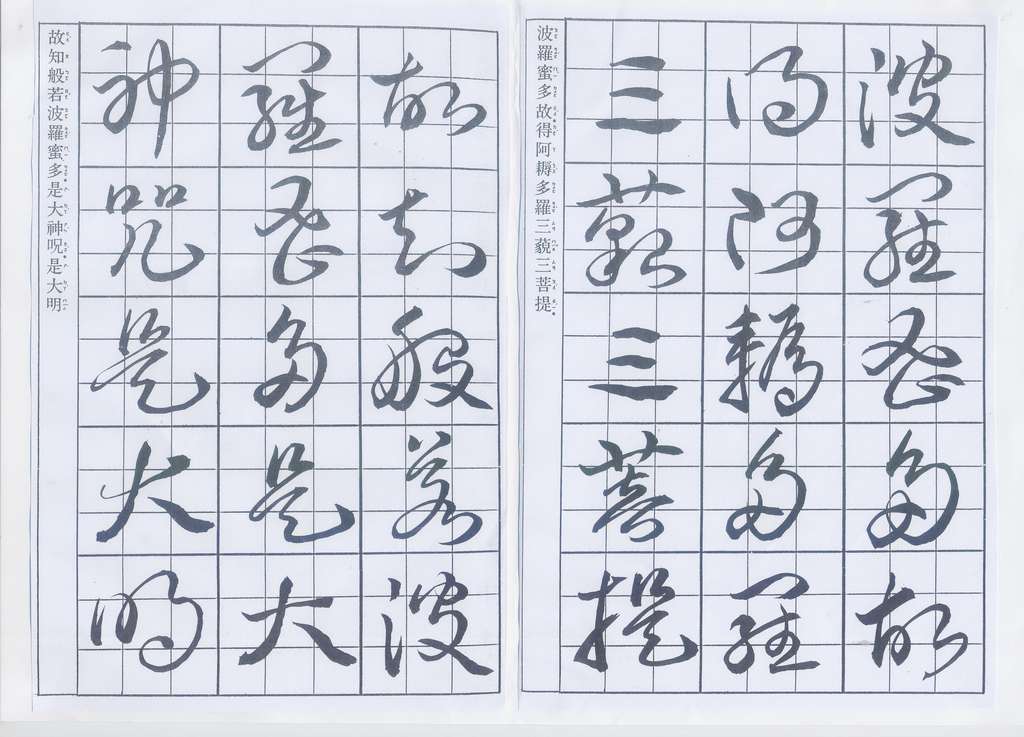 波羅蜜多故
得阿耨多羅
三藐三菩提
波羅蜜多故得阿耨多羅三藐三菩提
故知般若波
羅蜜多是大
神咒是大明
故知般若波羅蜜多是大神呪是大明